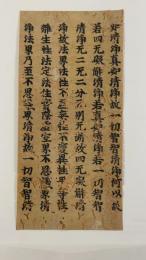 如清淨真如清淨故一切智智清淨何以故
若四无礙解清淨若真如清淨若一切智智
清淨无二无二分无別无斷故四无礙解清
淨故法界法性不虛妄性不變異性平等性
離生性法定法住實際虛空界不思議界清
淨法界乃至不思議界清淨故一切智智清